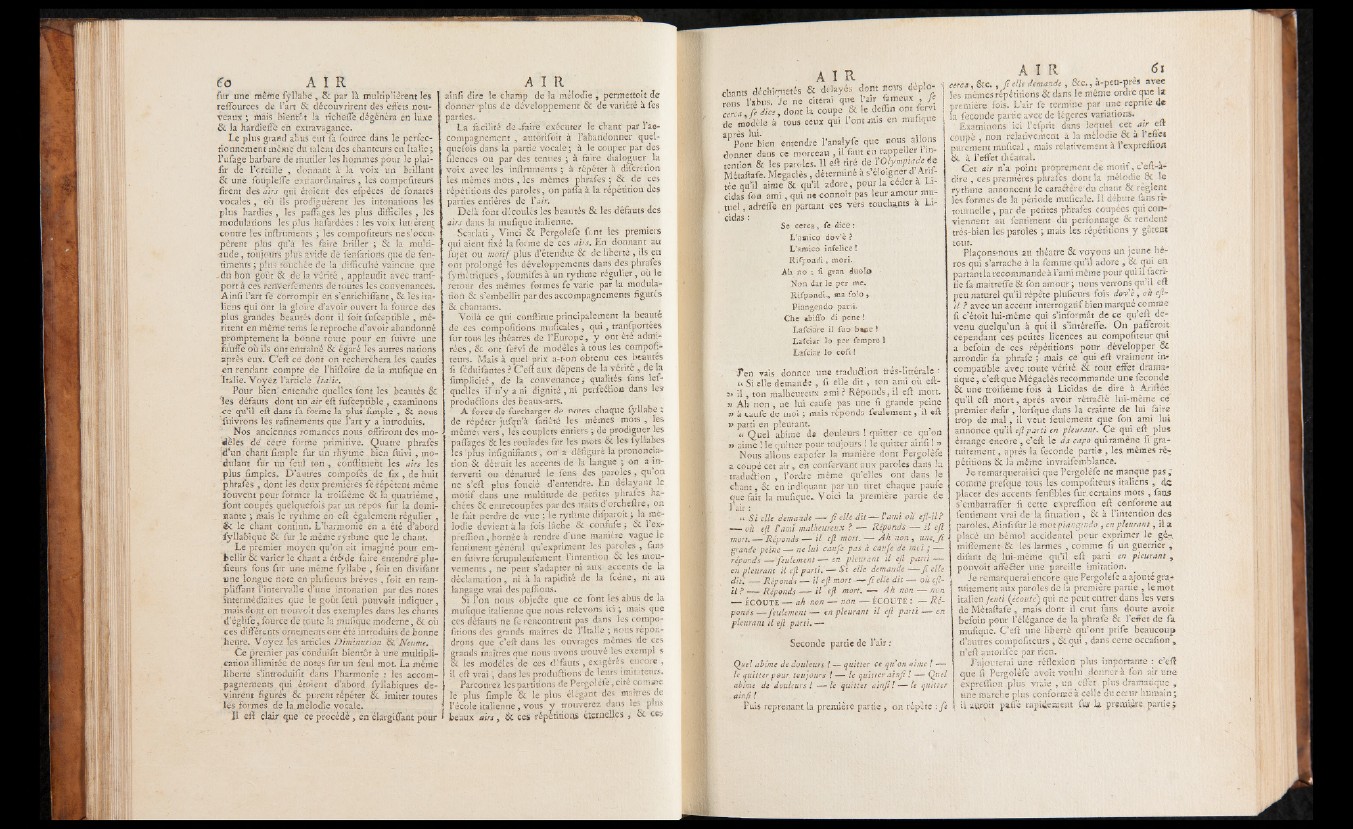 60 A I R
sur une même syllabe, & par là multiplièrent les
ressources de l'art & découvrirent des effets nou-
veaux ; mais bientôt la richesse dégénéra en luxe
& la hardiesse en extravagance.
Le plus grand abus eut sa source dans le perfec-
tionnement même du talent des chanteurs en Italie ;
l'usage barbare de mutiler les hommes pour le plai-
sir de l'oreille , donnant à la voix un brillant
& une souplesse extraordinaires , les compositeurs
firent des airs qui étoient des espèces de sonates
vocales , où ils prodiguèrent les intonations les
plus hardies , les passages les plus difficiles , les
modulations les plus hasardées : les voix luttèrent
contre les instrumens ; les compositeurs ne s'occu-
pèrent plus qu'à les faire briller ; & la multi-
tude , toujours plus avide de sensations que de sen-
timents ; plus touchée de la difficulté vaincue que
du bon goût & de la vérité , applaudit avec trans-
port à ces renversements de toutes les convenances.
Ainsi l'art se corrompit en s'enrichissant, & les ita-
liens qui ont la gloire d'avoir ouvert la source des
plus grandes beautés dont il soit susceptible , mé-
ritent en même tems le reproche d'avoir abandonné
promptement la bonne route pour en suivre une
fausse où ils ont entraîné & égaré les autres nations
après eux. C'est ce dont on recherchera les causes
en rendant compte de l'histoire de la musique en
Italie. Voyez l'article Italie.
Pour bien entendre quelles sont les beautés &
les défauts dont un air est susceptible , examinons
ce qu'il est dans sa forme la plus simple , & nous
suivrons les rafinements que l'art y a introduits.
Nos anciennes romances nous offriront des mo-
dèles de cette forme primitive. Quatre phrases
d'un chant simple sur un rhytme bien suivi , mo-
dulant sur un seul ton , constituent les airs les
plus simples. D'autres composés de six , de huit
phrases , dont les deux premières se répètent même
souvent pour former la troisième & la quatrième,
sont coupés quelquefois par un repos sur la domi-
nante ; mais le rythme en est également régulier ,
& le chant continu. L'harmonie en a été d'abord
syllabique & sur le même rythme que le chant.
Le premier moyen qu'on ait imaginé pour em-
bellir & varier le chant a été de faire entendre plu-
sieurs sons sur une même syllabe , soit en divisant
une longue note en plusieurs brèves , soit en rem-
plissant l'intervalle d'une intonation par des notes
intermédiaires que le goût seul pouvoit indiquer ,
mais dont on trouvoit des exemples dans les chants
d'église, source de toute la musique moderne, & où
ces différents ornements ont été introduits de bonne
heure. Voyez les articles Diminution & Neume.
Ce premier pas conduisit bientôt à une multipli-
cation illimitée de notes sur un seul mot. La même
liberté s'introduisit dans l'harmonie : les accom-
pagnements qui étoient d'abord syllabiques de-
vinrent figurés & purent répéter & imiter toutes
les formes de la mélodie vocale.
Il est clair que ce procédé , en élargissant pour
A I R
ainsi dire le champ de la mélodie , permettoit de
donner plus de développement & de variété à ses
parties.
La facilité de faire exécuter le chant par l'ac-
compagnement , autorisoit à l'abandonner quel-
quefois dans la partie vocale ; à le couper par des
silences ou par des tenues ; à faire dialoguer la
voix avec les instruments ; à répéter à discrétion
les mêmes mots , les mêmes phrases ; & de ces
répétitions des paroles , on passa à la répétition des
parties entières de l'air.
Delà sont découlés les beautés & les défauts des
airs dans la musique italienne.
Scarlati , Vinci & Pergolèse sont les premiers
qui aient fixé la forme de ces airs. En donnant au
sujet ou motif plus d'étendue & de liberté , ils en
ont prolongé les développements dans des phrases
symétriques , soumises à un rythme régulier , où le
retour des mêmes formes se varie par la modula-
tion & s'embellit par des accompagnements figurés
& chantants.
Voilà ce qui constitue principalement la beauté
de ces compositions musicales , qui , transportées
sur tous les théatres de l'Europe, y ont été admi-
rées , & ont servi de modèles à tous les composi-
teurs. Mais à quel prix a-t-on obtenu ces beautés
si séduisantes ? C'est aux dépens de la vérité , de la
simplicité , de la convenance ; qualités sans les-
quelles il n'y a ni dignité , ni perfection dans les
productions des beaux-arts.
A force de surcharger de notes chaque syllabe ;
de répéter jusqu'à satiété les mêmes mots , les
mêmes vers , les couplets entiers ; de prodiguer les
passages & les roulades sur les mots & les syllabes
les plus insignifiants , on a défiguré la prononcia-
tion & détruit les accents de la langue ; on a in-
terverti ou dénaturé le sens des paroles , qu'on
ne s'est plus soucié d'entendre. En délayant le
motif dans une multitude de petites phrases ha-
chées & entrecoupées par des traits d'orchestre, on
le fait perdre de vue ; le rythme disparoît ; la mé-
lodie devient à la fois lâche & confuse ; & l'ex-
pression , bornée à rendre d'une manière vague le
sentiment général qu'expriment les paroles , sans
en suivre scrupuleusement l'intention & les mou-
vements , ne peut s'adapter ni aux accents de la
déclamation , ni à la rapidité de la scène, ni au
langage vrai des passions.
Si l'on nous objecte que ce sont les abus de la
musique italienne que nous relevons ici ; mais que
ces défauts ne se rencontrent pas dans les compo-
sitions des grands maîtres de l'Italie ; nous répon-
drons que c'est dans les ouvrages mêmes de ces
grands maîtres que nous avons trouvé les exemples
& les modèles de ces défauts , exagérés encore ,
il est vrai , dans les productions de leurs imitateurs.
Parcourez les partitions de Pergolèse, cité comme
le plus simple & le plus élégant des maîtres de
l'école italienne , vous y trouverez dans les plus
beaux airs , & ces répétitions éternelles , & ces
A I R
chants déchiquetés & délayés dont nous déplo-
rons l'abus. Je ne citerai que l'air fameux , se
cerca, se dice , dont la coupe & le dessin ont servi
de modèle à tous ceux qui l'ont mis en musique
après lui.
Pour bien entendre l'analyse que nous allons
donner dans ce morceau , il faut en rappeller l'in-
tention & les paroles. Il est tiré de l'Olympiade de
Métastase. Megaclès , déterminé à s'éloigner d'Aris-
tée qu'il aime & qu'il adore , pour la céder à Li-
cidas son ami , qui ne connoît pas leur amour mu-
tuel , adresse en partant ces vers touchants à Li-
cidas :
Se cerca, se dice :
L'amico dov'è ?
L'amico infelice !
Rispondi , mori.
Ah no : si gran duolo
Non dar le per me.
Rispondi, ma solo ,
Piangendo parti.
Che abisso di pene !
Lasciare il suo bene !
Lasciar lo per sempre !
Lasciar lo cosi !
J'en vais donner une traduction très-littérale :
« Si elle demande , si elle dit , ton ami où est-
» il , ton malheureux ami ? Réponds , il est mort.
» Ah non , ne lui cause pas une si grande peine
» à cause de moi ; mais réponds seulement , il est
» parti en pleurant.
« Quel abime de douleurs ! quitter ce qu'on
» aime ! le quitter pour toujours ! le quitter ainsi ! »
Nous allons exposer la manière dont Pergolèse
a coupé cet air , en conservant aux paroles dans la
traduction , l'ordre même qu'elles ont dans le
chant , & en indiquant par un tiret chaque pause
que fait la musique. Voici la première partie de
l'air :
« Si elle demande — si elle dit — l'ami où est-il ?
— où est l'ami malheureux ? — Réponds — il est
mort. — Réponds — il est mort. — Ah non , une si
grande peine — ne lui cause pas à cause de moi ; —
réponds — seulement — en pleurant il est parti —
en pleurant il est parti. — Si elle demande — si elle
dit. — Réponds — il est mort — si elle dit — où est-
il ? — Réponds — il est mort. — Ah non — non
— ÉCOUTE — ah non — non — ÉCOUTE : — Ré-
ponds — seulement — en pleurant il est parti — en
pleurant il est parti. —
Seconde partie de l'air :
Quel abime de douleurs ! — quitter ce qu'on aime ! —
le quitter pour toujours ! — le quitter ainsi ! — Quel
abime de douleurs ! — le quitter ainsi ! — le quitter
ainsi !
Puis reprenant la première partie , on répète : se
A I R 61
cerca, &c. , si elle demande , &c., à-peu-près avec
les mêmes répétitions & dans le même ordre que la
première fois. L'air se termine par une reprise de
la seconde partie avec de légères variations.
Examinons ici l'esprit dans lequel cet air est
coupé , non relativement à la mélodie & à l'effet
purement musical , mais relativement à l'expression
& à l'effet théatral.
Cet air n'a point proprement de motif , c'est-à-
dire , ces premières phrases dont la mélodie & le
rythme annoncent le caractère du chant & règlent
les formes de la période musicale. Il débute sans ri-
tournelle , par de petites phrases coupées qui con-
viennent au sentiment du personnage & rendent
très-bien les paroles ; mais les répétitions y gâtent
tout.
Plaçons-nous au théatre & voyons un jeune hé-
ros qui s'arrache à la femme qu'il adore , & qui en
partant la recommande à l'ami même pour qui il sacri-
fie sa maîtresse & son amour ; nous verrons qu'il est
peu naturel qu'il répète plusieurs fois dov'è , où est-
il ? avec un accent interrogatif bien marqué comme
si c'étoit lui-même qui s'informât de ce qu'est de-
venu quelqu'un à qui il s'intéresse. On passeroit
cependant ces petites licences au compositeur qui
a besoin de ces répétitions pour développer &
arrondir sa phrase ; mais ce qui est vraiment in-
compatible avec toute vérité & tout effet drama-
tique , c'est que Mégaclès recommande une seconde
& une troisième fois à Licidas de dire à Aristée
qu'il est mort , après avoir rétracté lui-même ce
premier desir , lorsque dans la crainte de lui faire
trop de mal , il veut seulement que son ami lui
annonce qu'il est parti en pleurant. Ce qui est plus
étrange encore , c'est le da capo qui ramène si gra-
tuitement , après la seconde partie , les mêmes ré-
pétitions & la même invraisemblance.
Je remarquerai ici que Pergolèse ne manque pas ,
comme presque tous les compositeurs italiens , de
placer des accents sensibles sur certains mots , sans
s'embarrasser si cette expression est conforme au
sentiment vrai de la situation , & à l'intention des
paroles. Ainsi sur le mot piangendo , en pleurant , il a
placé un bémol accidentel pour exprimer le gé-
missement & les larmes , comme si un guerrier ,
disant de lui-même qu'il est parti en pleurant ,
pouvoit affecter une pareille imitation.
Je remarquerai encore que Pergolèse a ajouté gra-
tuitement aux paroles de la première partie , le mot
italien senti (écoute) qui ne peut entrer dans les vers
de Métastase , mais dont il crut sans doute avoir
besoin pour l'élégance de la phrase & l'effet de sa
musique. C'est une liberté qu'ont prise beaucoup
d'autres compositeurs , & qui , dans cette occasion ,
n'est autorisée par rien.
J'ajouterai une réflexion plus importante : c'est
que si Pergolèse avoit voulu donner à son air une
expression plus vraie , un effet plus dramatique ,
une marche plus conforme à celle du cœur humain ;
il auroit passé rapidement sur la première partie ;